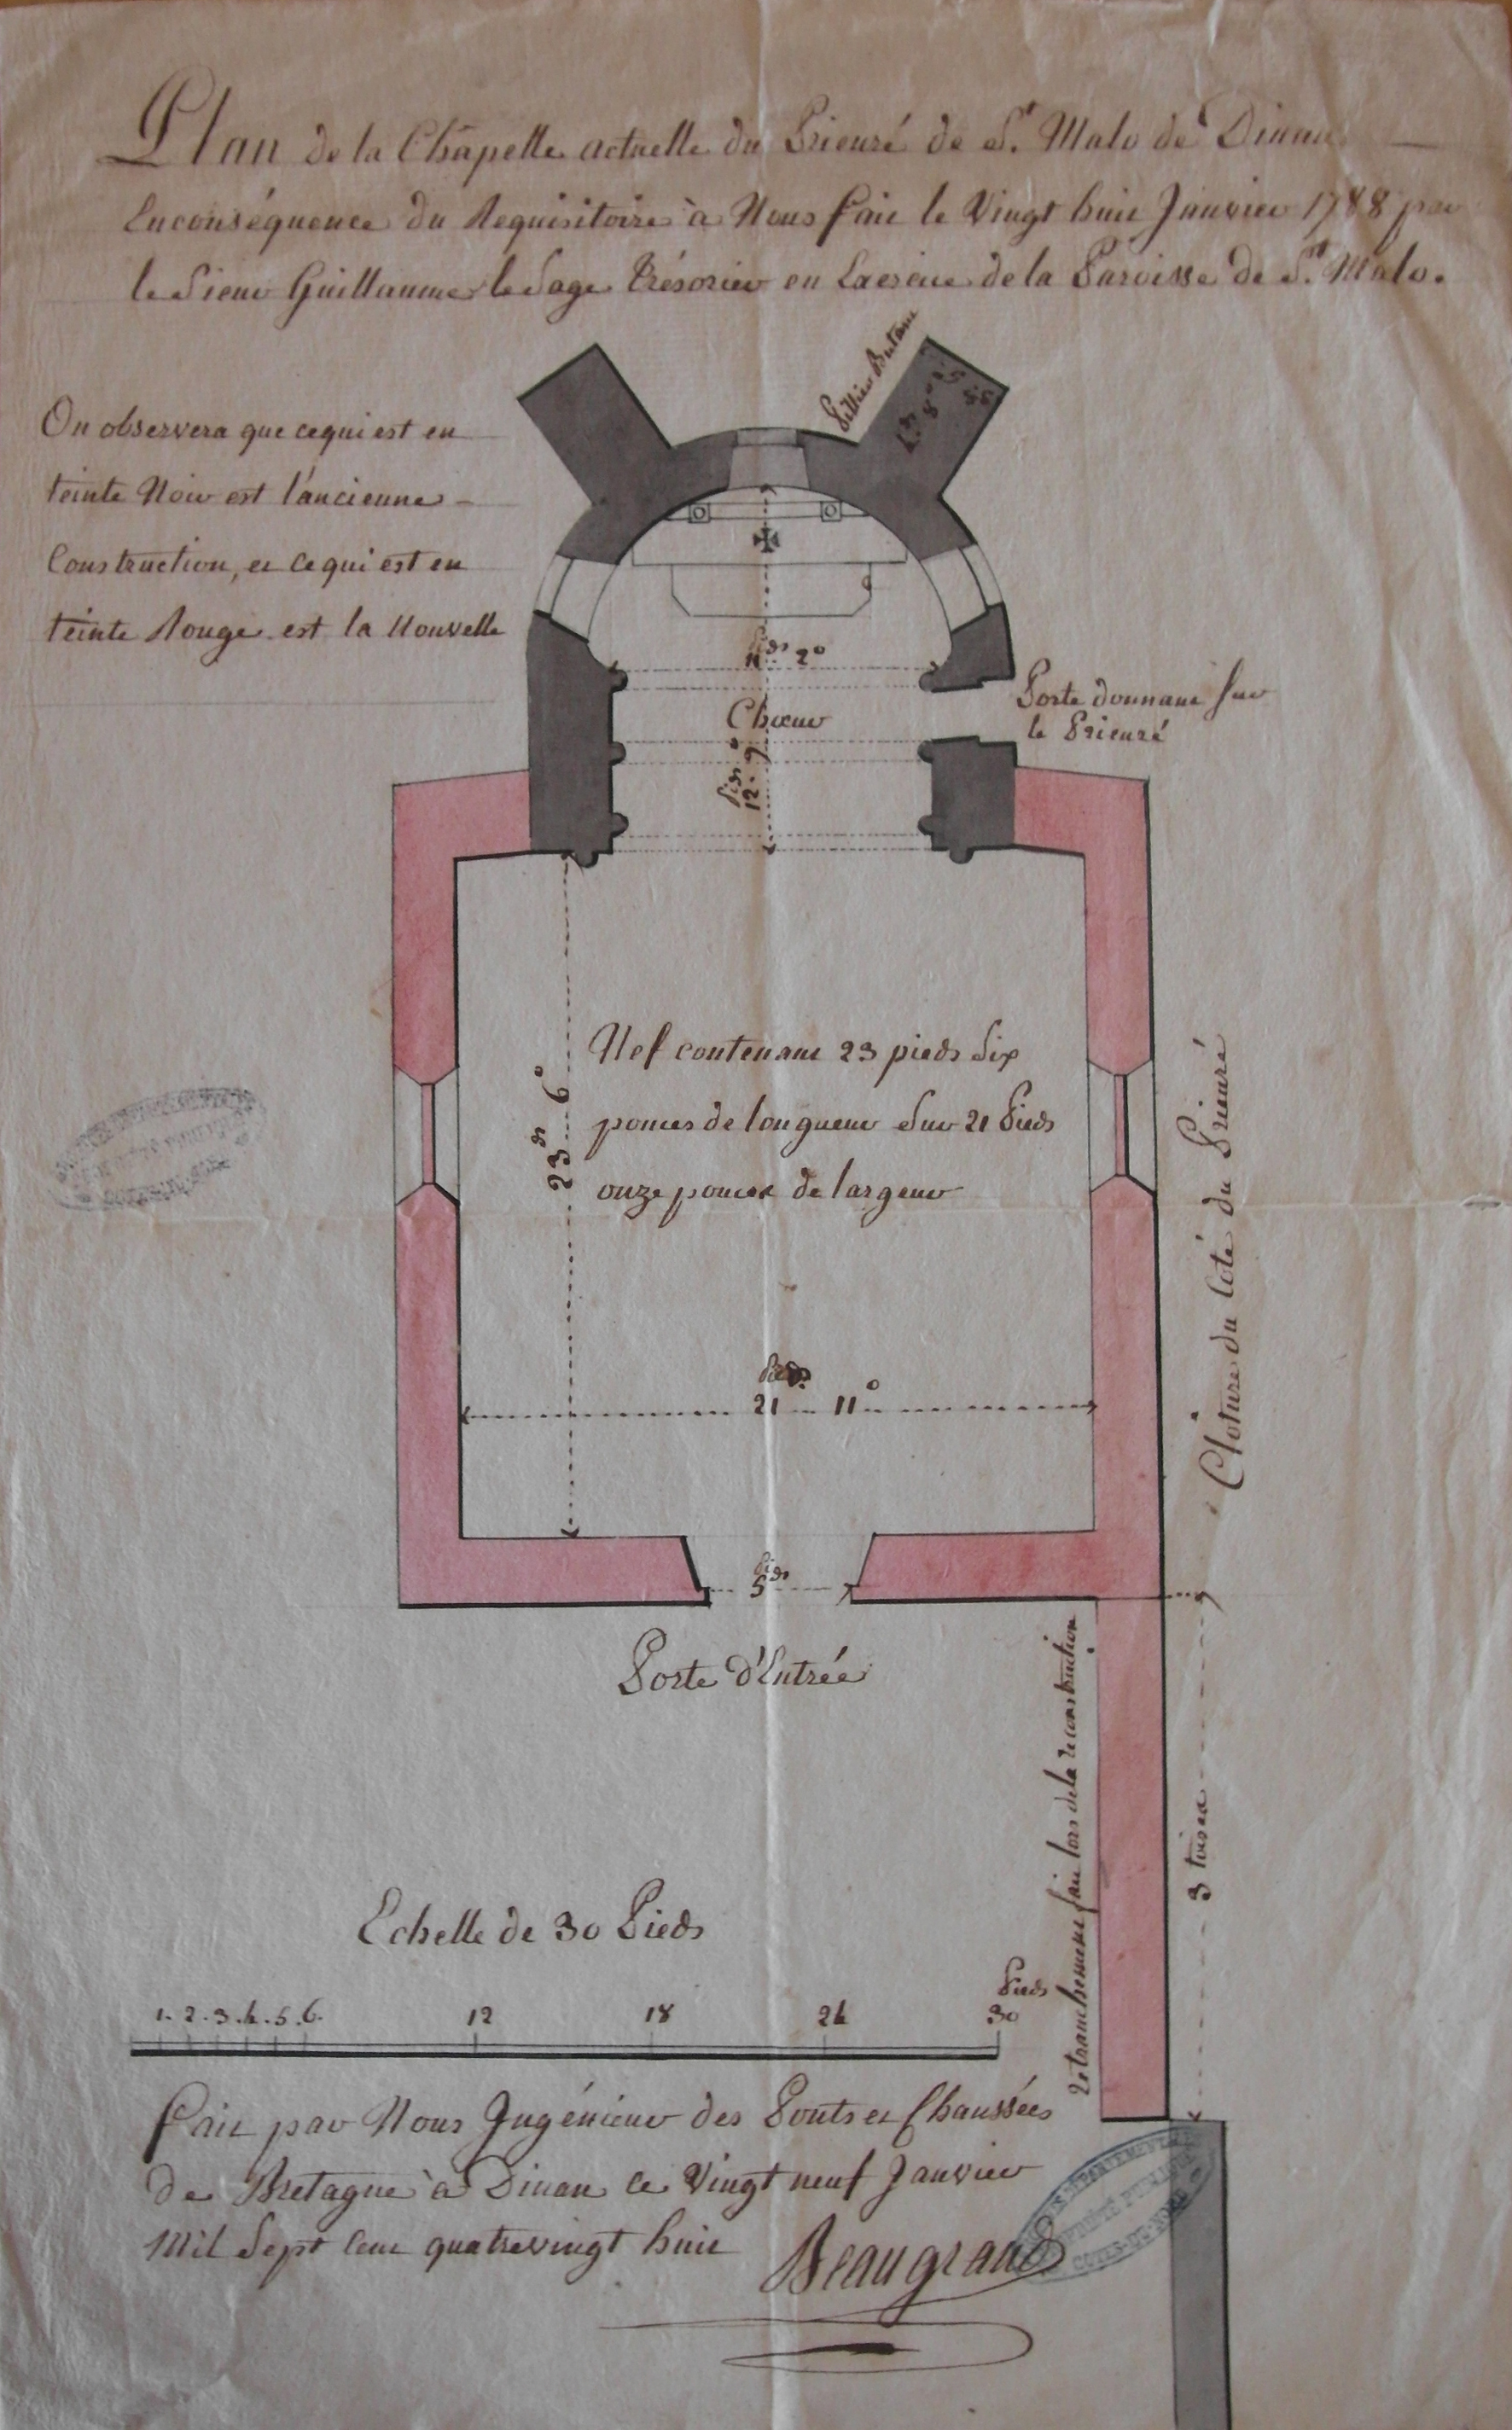 Plan de la Chapelle actuelle du Prieuré de St. Malo de Dinan
Enconséquence du Requisitoire à Nous fait le Vingt huit Janvier 1788 par
le Sieur Guillaume le Sage Trésorier en de la Paroisse de St. Malo.
On observera que cequi est en
teinte Noir est l'ancienne
Construction, et ce qui est en
teinte Rouge est la Nouvelle
Pillier Butant
pds 8°
pds
11. 2°
Choeur
pds
12. 9°
Porte donnant Sur
le Prieuré
Nef contenant 23 pieds Six
pouces de longueur Sur 21 Pieds
onze pouces de largeur
23 ds 6°
Pieds
21 11°
pds
5
Porte d'Entrée
Clôture du Côté du Prieuré
Retranchement fait lors de la Reconstruction
3 toises
Echelle de 30 Pieds
1. 2. 3. 4. 5. 6. 12 18 24 30 Pieds
fait par Nous Ingénieur des Ponts et Chaussées
de Bretagne à Dinan le Vingt neuf Janvier
Mil Sept Cent quatrevingt huit Beaugrand
PROPRIÉTÉ PUBLIQUE
CÔTES-DU-NORD